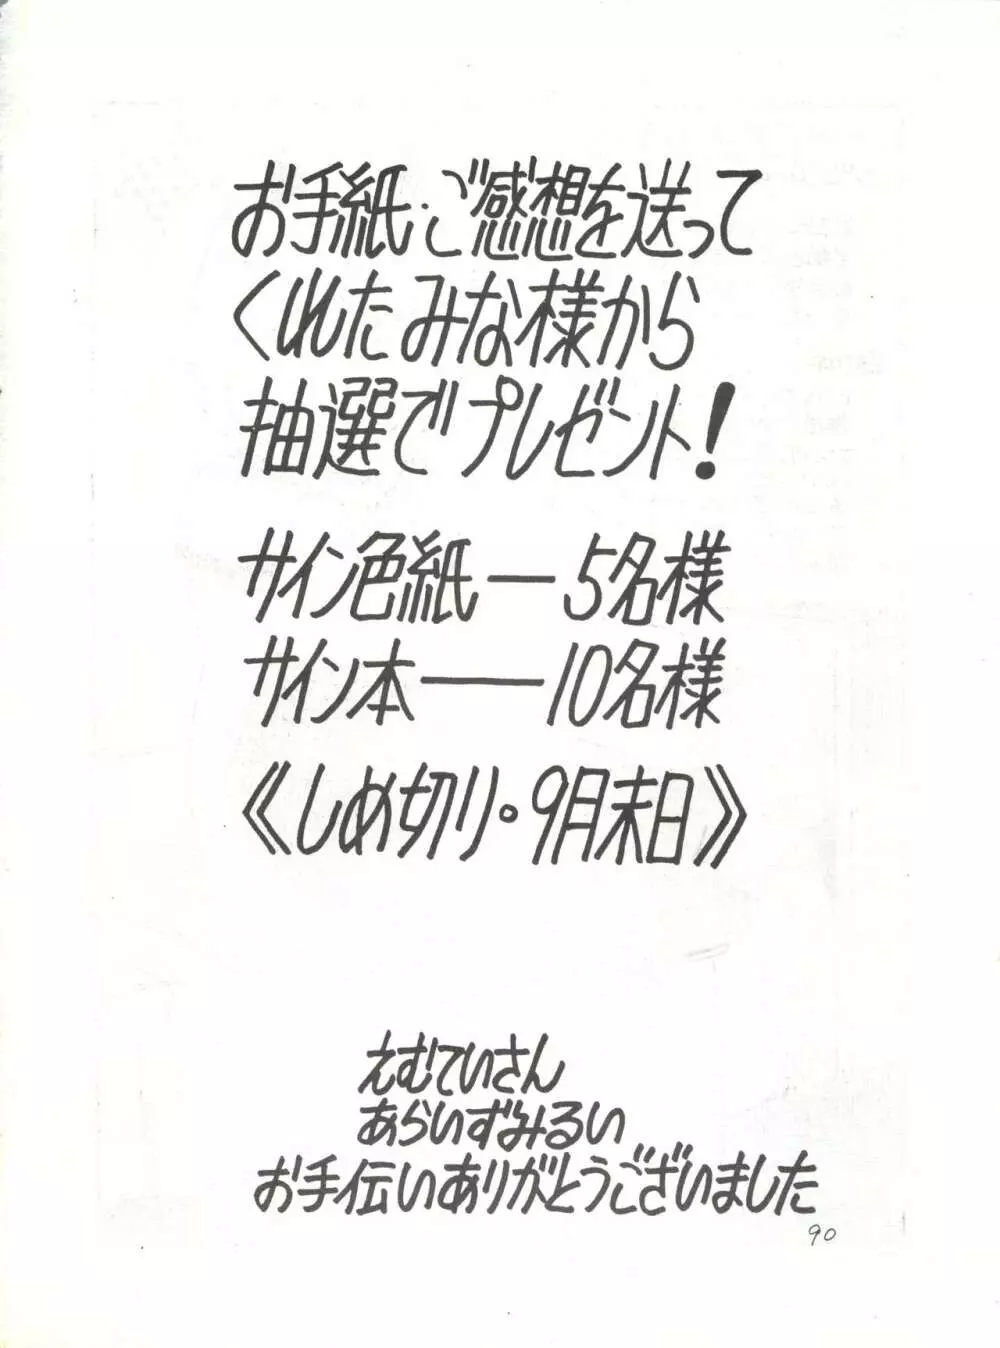 お手紙・ご感想を送って
くれたみな様から
抽選でプレゼント!
サイン色紙—5名様
サイン本——10名様
《しめ切り・9月末日》
えむてぃさん
あらいずみるい
お手伝いありがとうございました
90